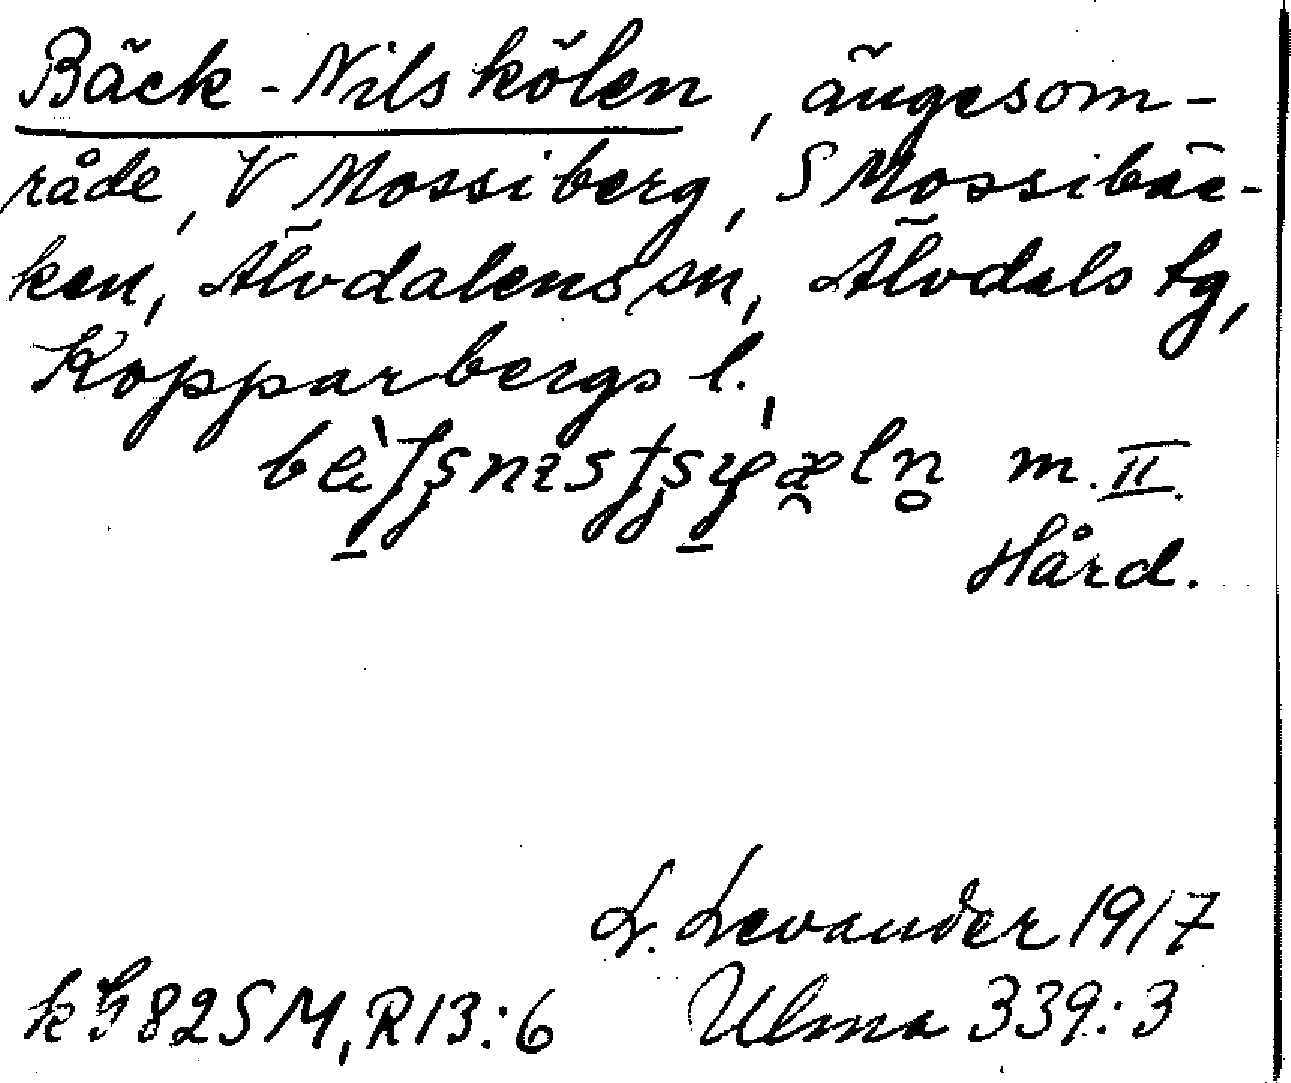 Bäck-Nilskölen, ängesom-
råde, V Mossiberg, S Mossibäc-
ken, Älvdalens sn, Älvdals tg,
Kopparbergs l.
m. II
Hård.
L. Levander 1917
k G 82 S M, R 13:6 Ulma 339:3